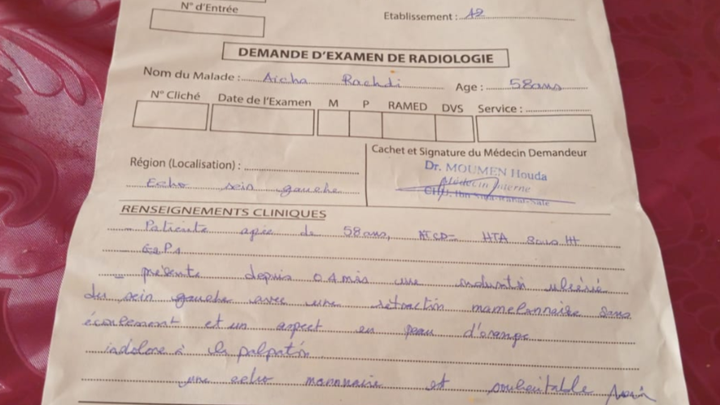 N° d'Entrée
Etablissement : A2
DEMANDE D'EXAMEN DE RADIOLOGIE
Nom du Malade : Aicha Rachdi Age : 58 ans
N° Cliché Date de l'Examen M P RAMED DVS Service :
Région (Localisation) :
Cachet et Signature du Médecin Demandeur
Dr. MOUMEN Houda
Médecin Interne
Echo sein gauche
RENSEIGNEMENTS CLINIQUES
Patiente agée de 58 ans, ATCD HTA sous ttt
- présente depuis 04 mois une ulcéré
du sein gauche avec une rétraction mamelonnaire sans
écoulement et un aspect en peau d'orange
indolore à la palpation
une echo mammaire et souhaitable